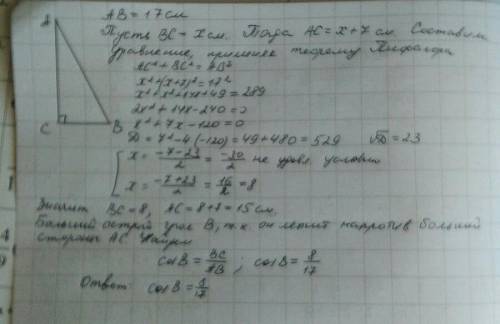 A
C
B
AB = 17 см
Пусть BC - x см. Тогда AC = x + 7 см. Составим
уравнение, применяя теорему Пифагора
AC² + BC² = AB²
x² + (x+7)² = 17²
x² + x² + 14x + 49 = 289
2x² + 14x - 240 = 0
x² + 7x - 120 = 0
D = 7² - 4·(-120) = 49 + 480 = 529 √D = 23
x = (-7-23)/2 = -30/2 не удовл. условию
x = (-7+23)/2 = 16/2 = 8
Значит BC = 8, AC = 8+7 = 15 см,
Больший острый угол B, т.к. он лежит напротив большей
стороны AC. Найдем
cos B = BC/AB ; cos B = 8/17
Ответ: cos B = 8/17